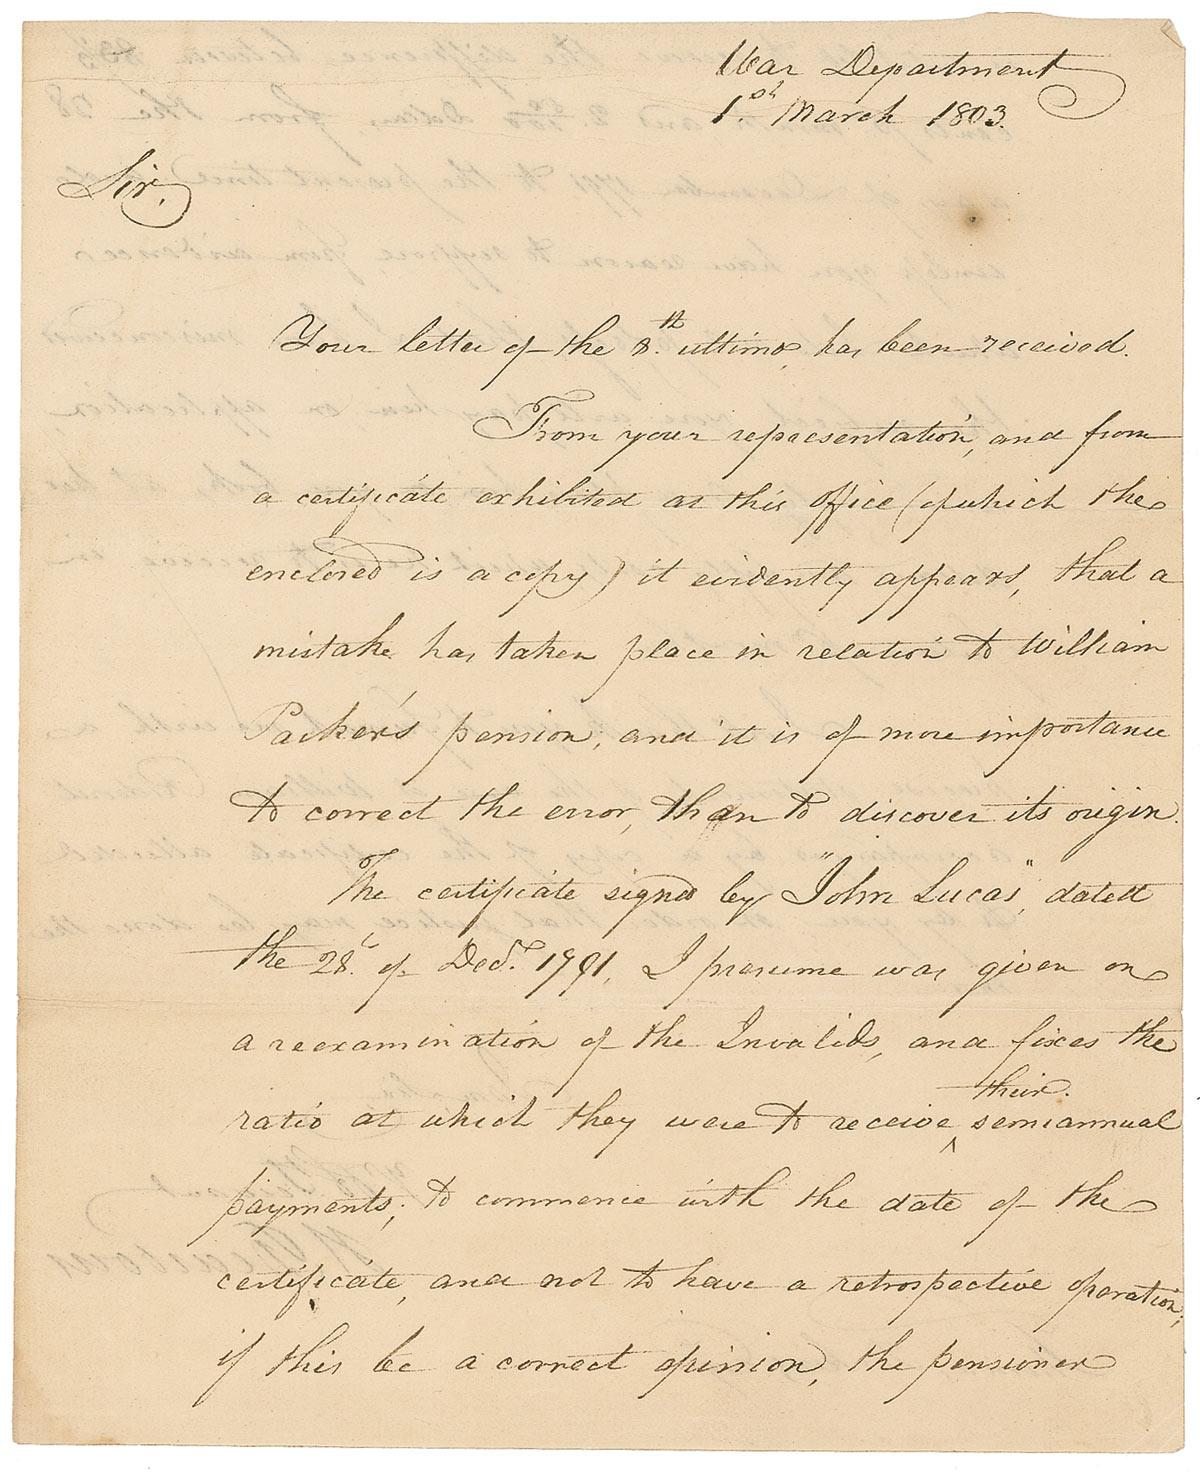 War Department
1st March 1803.
Sir,
Your letter of the 8th ultimo, has been received.
From your representation, and from
a certificate exhibited at this office (of which the
enclosed is a copy) it evidently appears, that a
mistake has taken place in relation to William
Parker's pension, and it is of more importance
to correct the error, than to discover its origin.
The certificate signed by "John Lucas", dated
the 28th of Decr. 1791, I presume was given on
a reexamination of the Invalids, and fixes the
ratio at which they were to receive ^ their semiannual
payments; to commence with the date of the
certificate, and not to have a retrospective operation;
if this be a correct opinion, the pensioner